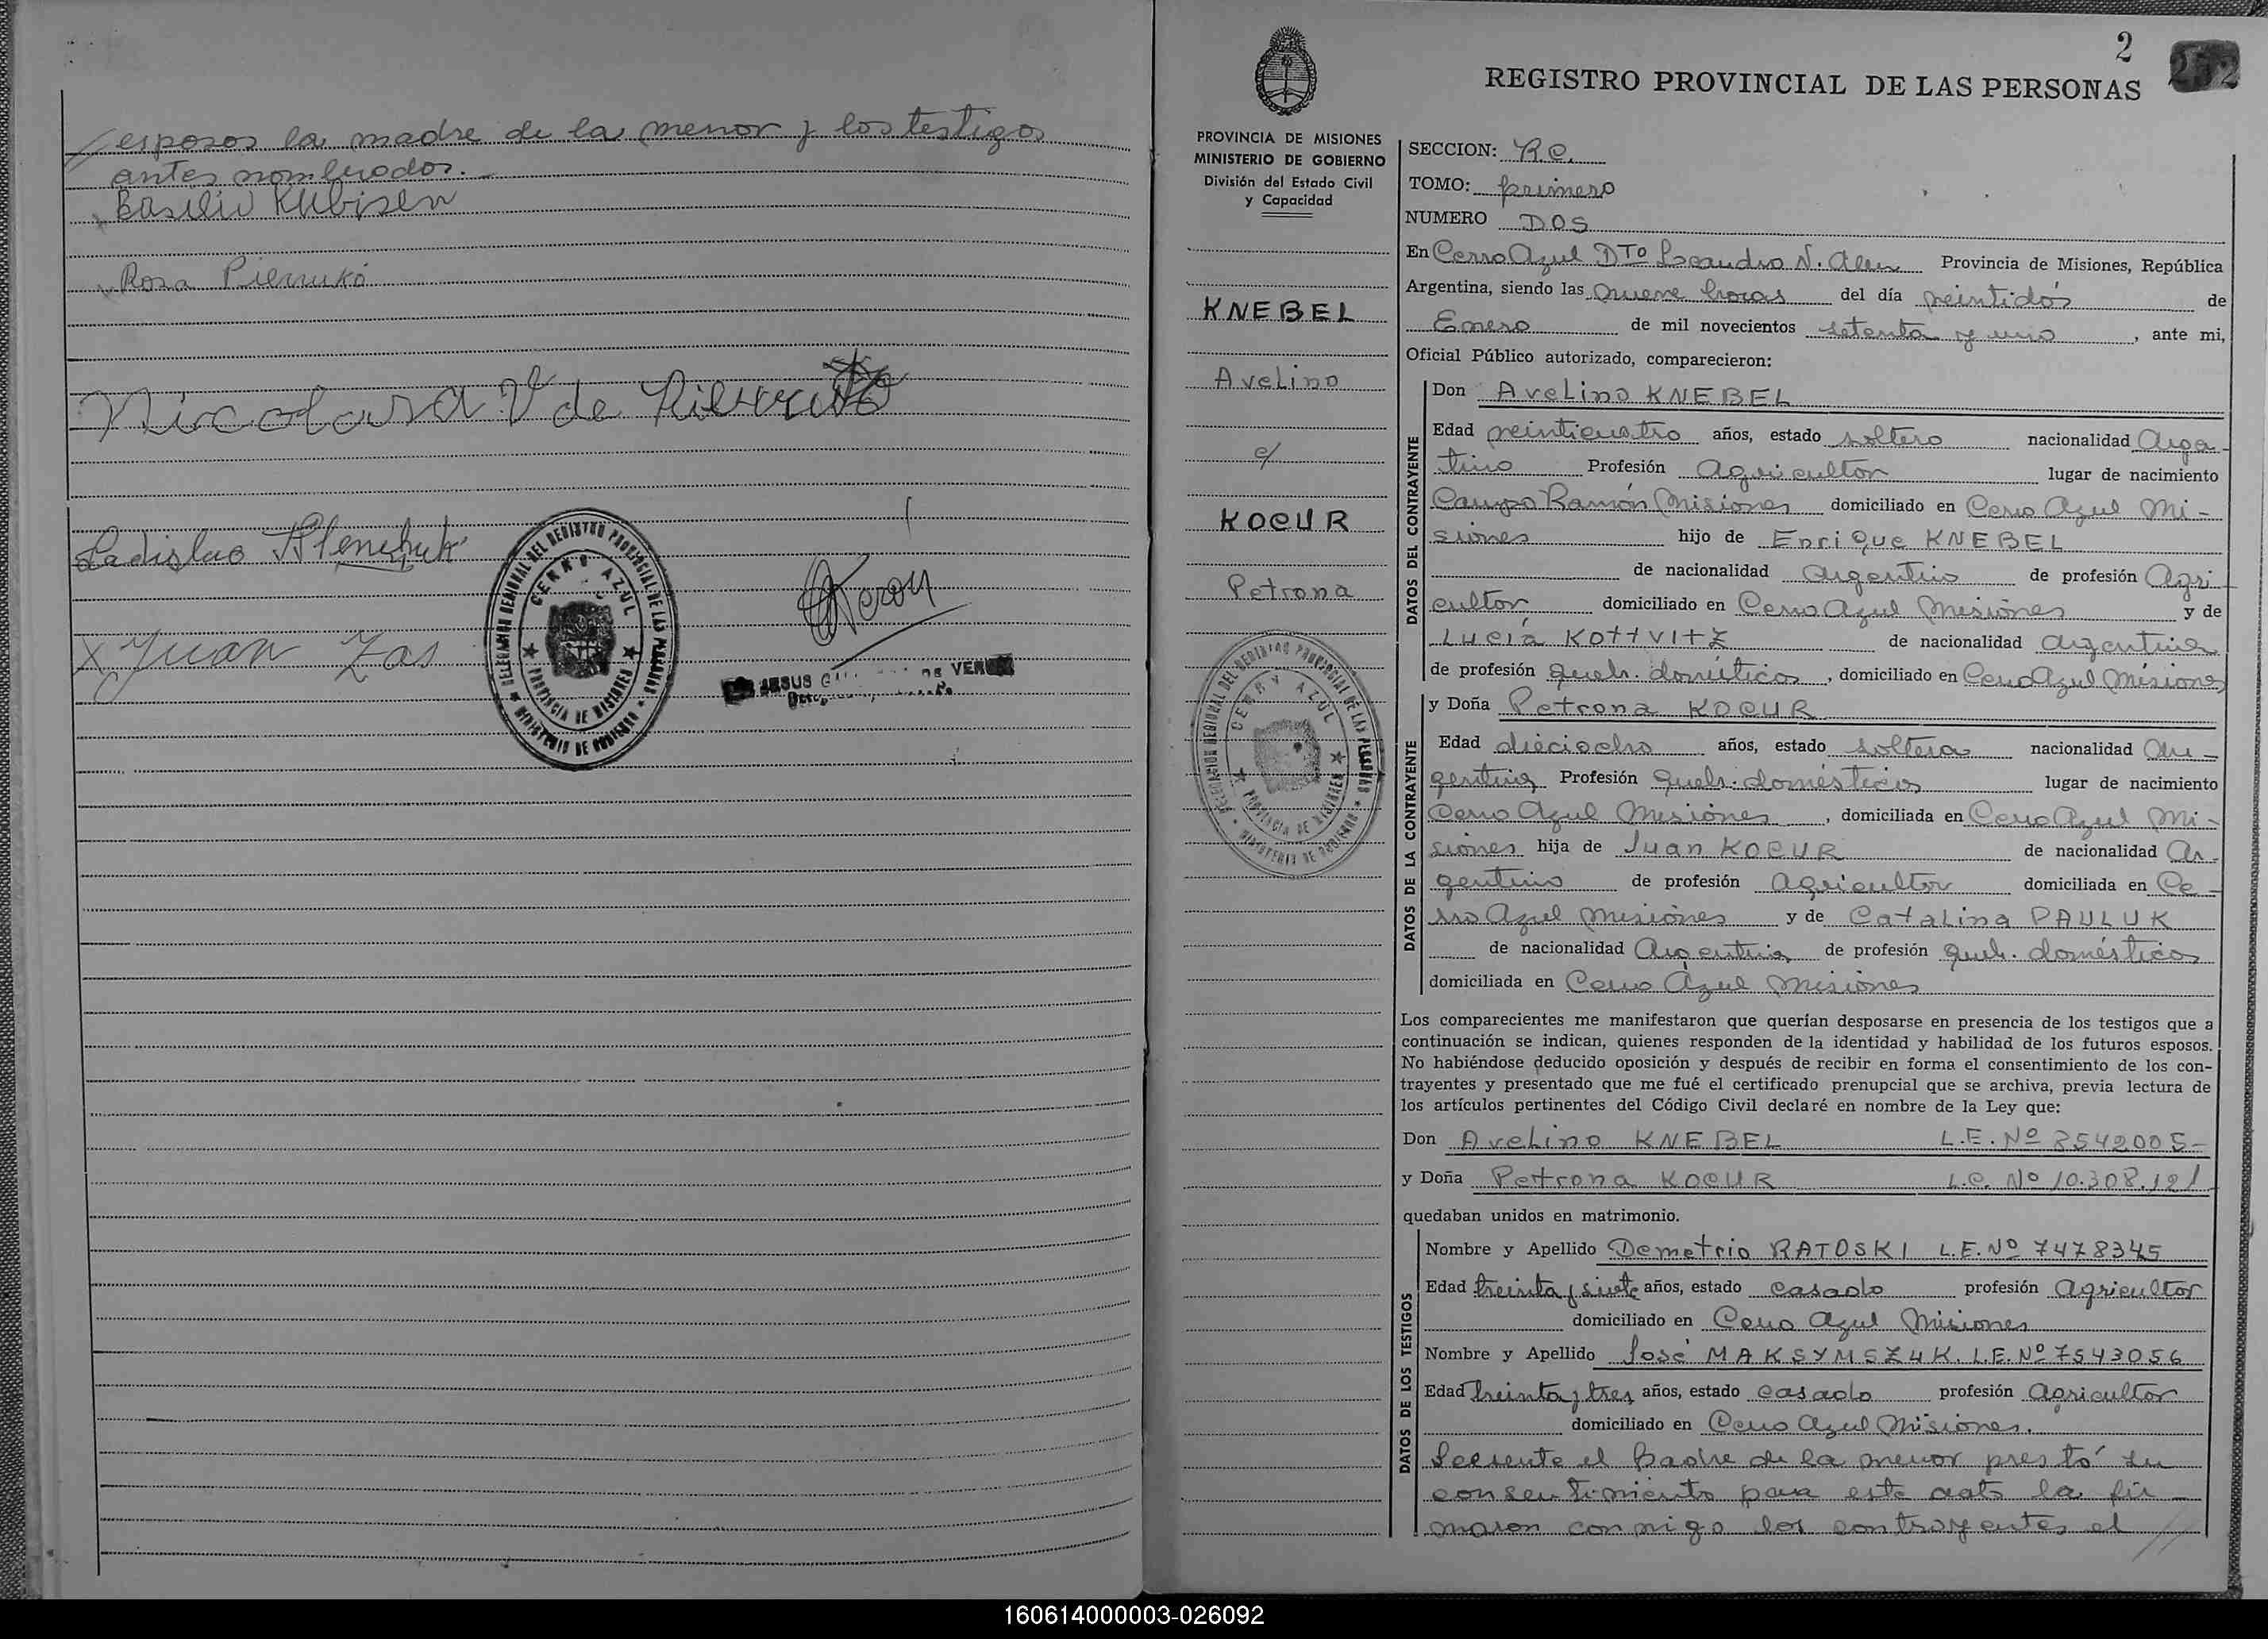 esposos la madre de la menor y los testigos
antes nombrados.
Basilio Kubisen
Rosa
Nicolasa V de
Ladislao
Juan Zas
DELEGACION REGIONAL DEL REGISTRO PROVINCIAL DE LAS PERSONAS
CERRO AZUL
PROVINCIA DE MISIONES
MINISTERIO DE GOBIERNO
JESUS DE VERON
2
REGISTRO PROVINCIAL DE LAS PERSONAS
PROVINCIA DE MISIONES
MINISTERIO DE GOBIERNO
División del Estado Civil
y Capacidad
KNEBEL
Avelino
c/
KOCUR
Petrona
DELEGACION REGIONAL DEL REGISTRO PROVINCIAL DE LAS PERSONAS
CERRO AZUL
PROVINCIA DE MISIONES
MINISTERIO DE GOBIERNO
SECCION: R.C.
TOMO: primero
NUMERO DOS
En Cerro Azul DTO Leandro N. Alem Provincia de Misiones, República
Argentina, siendo las nueve horas del día veintidós de
Enero de mil novecientos setenta y uno, ante mi,
Oficial Público autorizado, comparecieron:
DATOS DEL CONTRAYENTE
Don Avelino KNEBEL
Edad veinticuatro años, estado soltero nacionalidad Argen-
tino Profesión Agricultor lugar de nacimiento
Campo Ramón Misiones domiciliado en Cerro Azul Mi-
siones hijo de Enrique KNEBEL
de nacionalidad Argentino de profesión Agri-
cultor domiciliado en Cerro Azul Misiones y de
Lucía KOTTVITZ de nacionalidad argentina
de profesión queh. domésticos, domiciliado en Cerro Azul Misiones
DATOS DE LA CONTRAYENTE
y Doña Petrona KOCUR
Edad dieciocho años, estado soltera nacionalidad Ar-
gentina Profesión queh. domésticos lugar de nacimiento
Cerro Azul Misiones, domiciliada en Cerro Azul Mi-
siones hija de Juan KOCUR de nacionalidad Ar-
gentino de profesión Agricultor domiciliada en Ce-
rro Azul Misiones y de Catalina PAULUK
de nacionalidad Argentina de profesión queh. domésticos
domiciliada en Cerro Azul Misiones
Los comparecientes me manifestaron que querían desposarse en presencia de los testigos que a
continuación se indican, quienes responden de la identidad y habilidad de los futuros esposos.
No habiéndose deducido oposición y después de recibir en forma el consentimiento de los con-
trayentes y presentado que me fué el certificado prenupcial que se archiva, previa lectura de
los artículos pertinentes del Código Civil declaré en nombre de la Ley que:
Don Avelino KNEBEL L.E. Nº 8542005-
y Doña Petrona KOCUR L.C. Nº 10.308.121
quedaban unidos en matrimonio.
DATOS DE LOS TESTIGOS
Nombre y Apellido Demetrio RATOSKI L.E. Nº 7478345
Edad treinta y siete años, estado casado profesión Agricultor
domiciliado en Cerro Azul Misiones
Nombre y Apellido José MAKSYMSZUK. L.E. Nº 7543056
Edad treinta y tres años, estado casado profesión Agricultor
domiciliado en Cerro Azul Misiones.
Presente el Padre de la menor prestó su
consentimiento para este acto la fir-
maron conmigo los contrayentes el
160614000003-026092